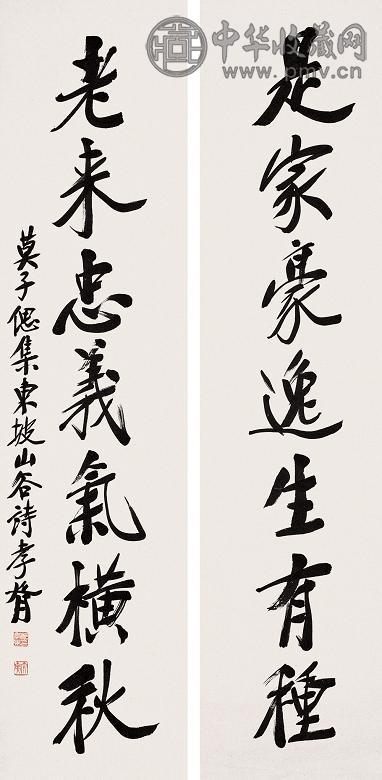 中华收藏网
www.pmv.cn
是家豪逸生有種
老来忠義氣橫秋
莫子偲集東坡山谷詩孝胥